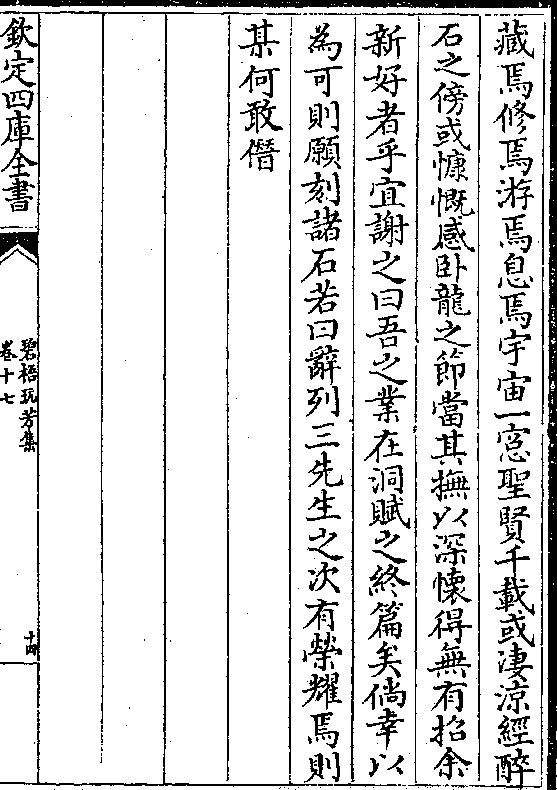 藏焉修焉游焉息焉宇宙一窓聖賢千載或凄涼經醉
石之傍或慷慨感卧龍之節當其撫以深懐得無有招余
新好者乎宜謝之曰吾之業在洞賦之終篇矣倘幸以
為可則願刻諸石若曰辭列三先生之次有榮耀焉則
某何敢僭
欽定四庫全書
碧梧玩芳集
卷十七
十四